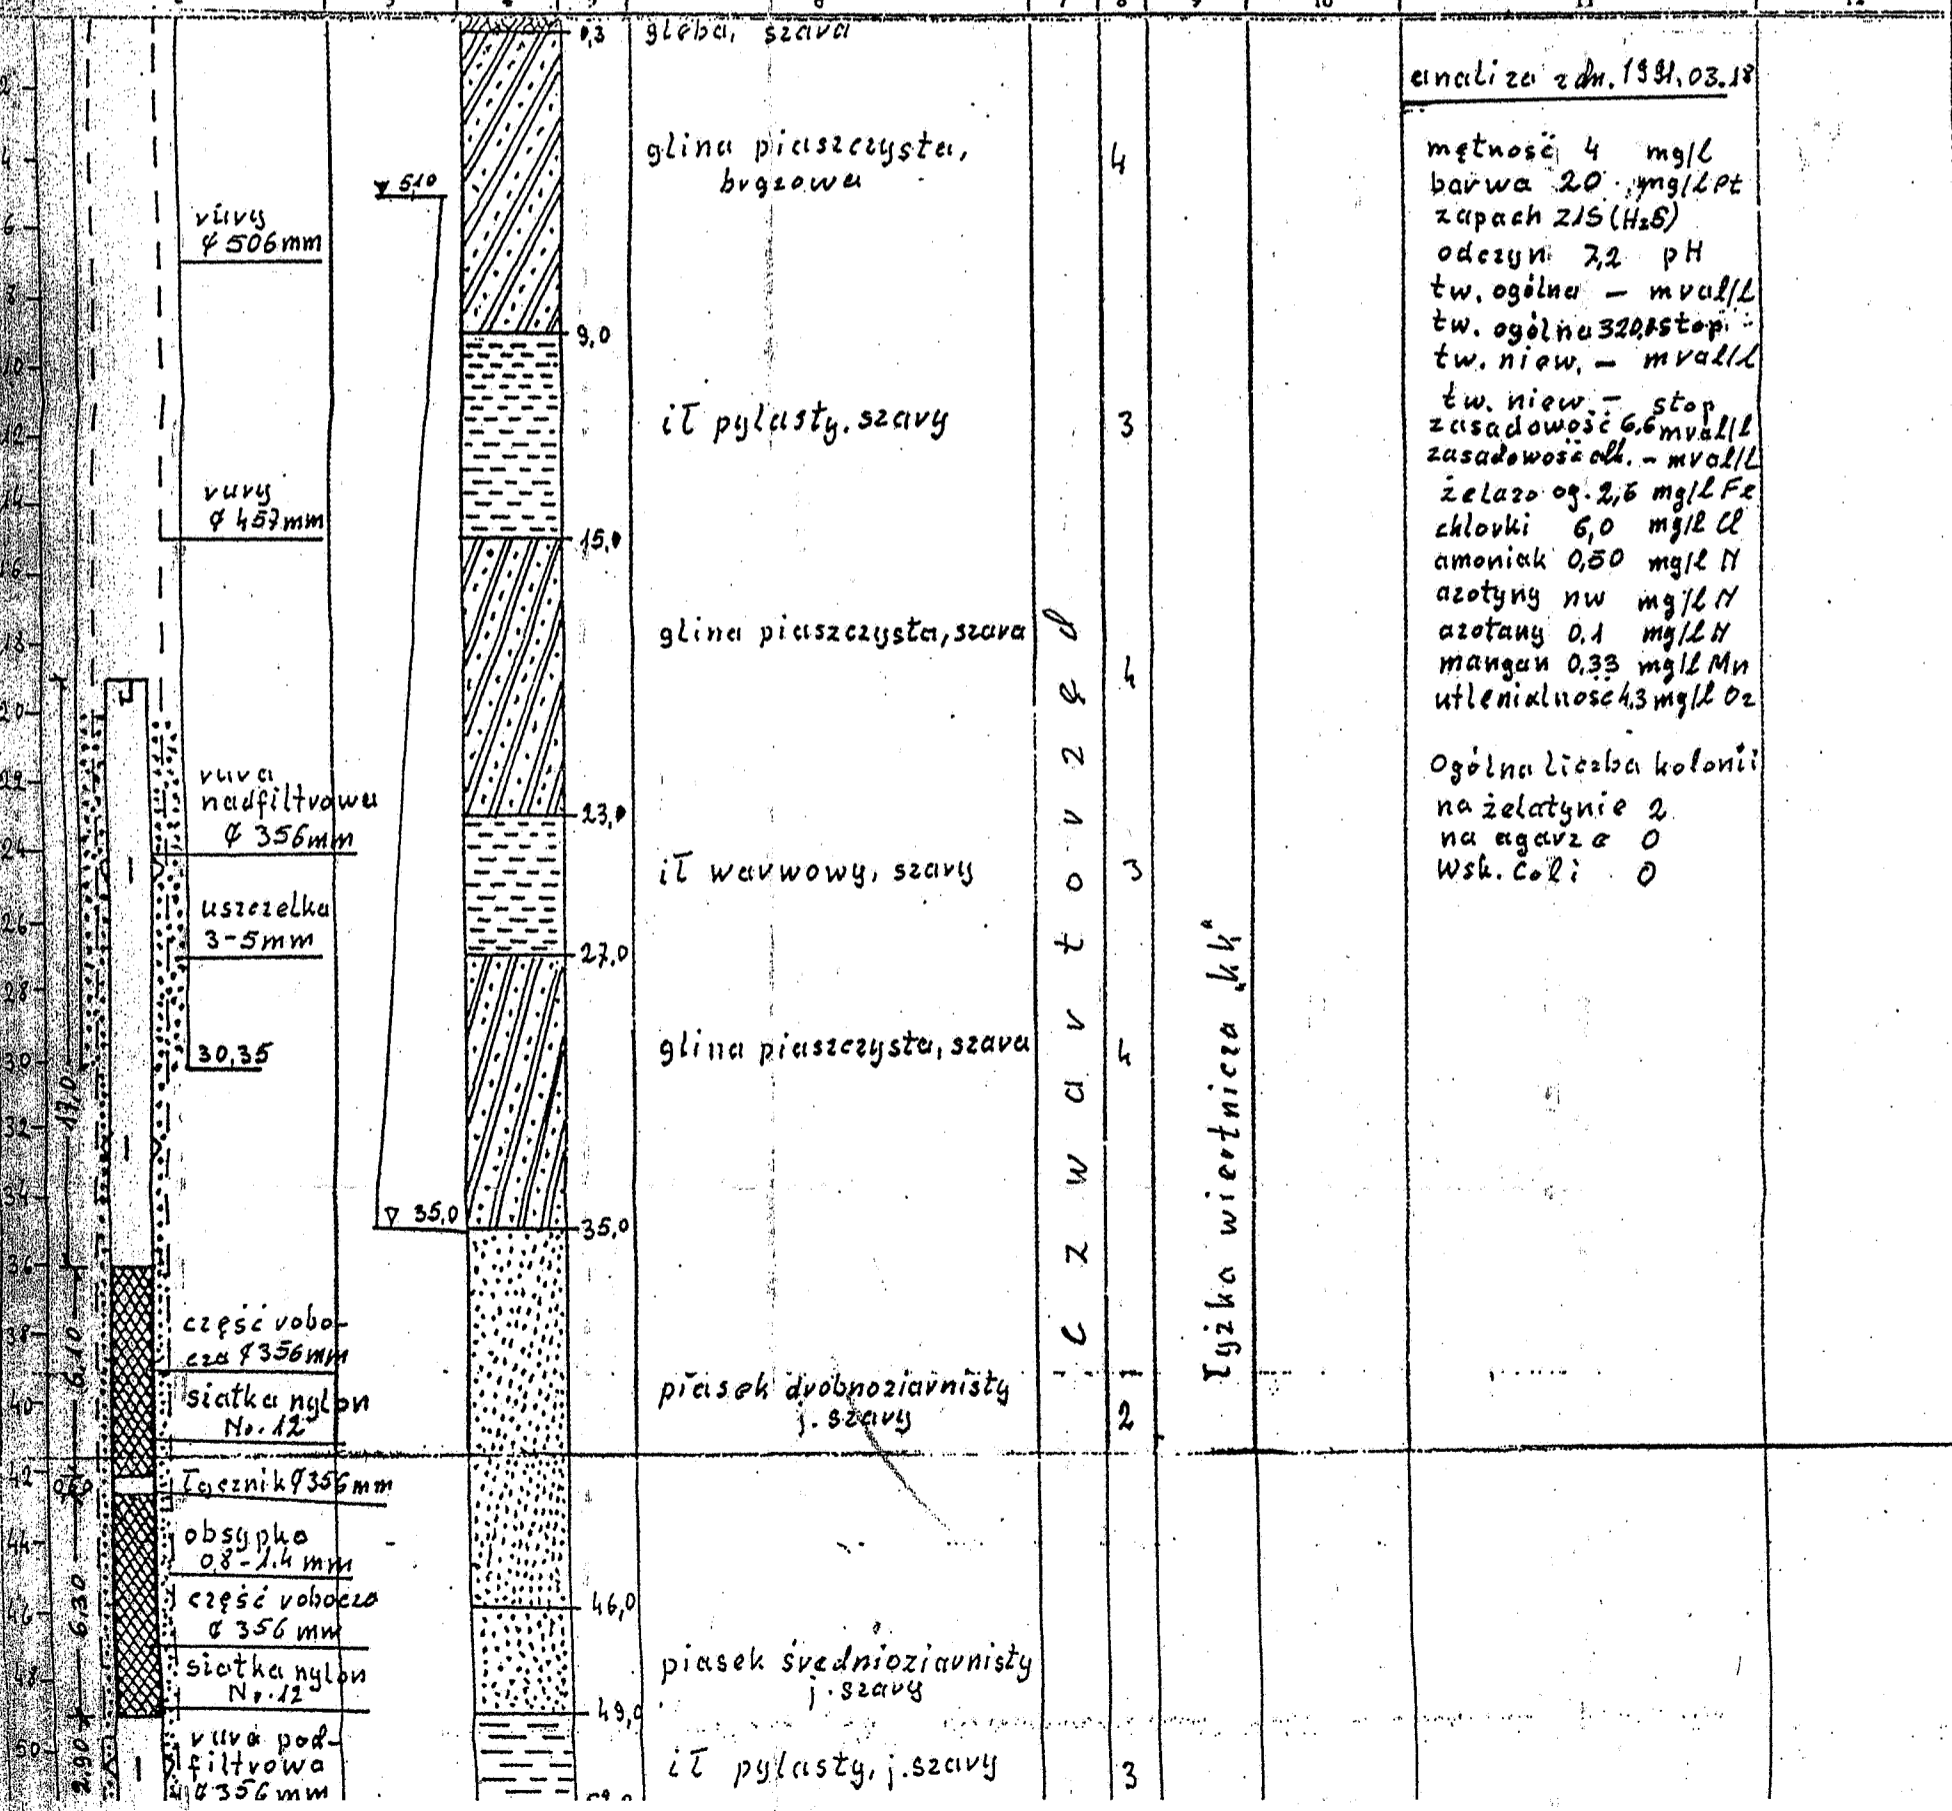 3 4 5 6 7 8 9 10 11 12
gleba, szara
0,3
analiza z dn. 1991.03.18
2
4
6
8
10
12
14
16
18
20
22
24
26
28
30
32
34
36
38
40
42
44
46
48
50
rury
¢ 506 mm
rury
¢ 457 mm
rura
nadfiltrowa
¢ 356 mm
uszczelka
3-5 mm
30,35
17,0
część robo-
cza ¢ 356 mm
6.10
siatka nylon
Nr. 12
łącznik ¢ 356 mm
obsypka
0,8-1.4 mm
część robocza
¢ 356 mm
6.30
siatka nylon
Nr. 12
rura pod-
filtrowa
¢ 356 mm
2.90
5,10
35,0
9,0
15,0
23,0
27,0
35,0
46,0
49,0
glina piaszczysta,
brązowa
ił pylasty, szary
glina piaszczysta, szara
ił warwowy, szary
glina piaszczysta, szara
piasek drobnoziarnisty
j. szary
piasek średnioziarnisty
j. szary
ił pylasty, j. szary
Czwartorzęd
4
3
4
3
4
2
3
łyżka wiertnicza „kk"
mętność 4 mg/l
barwa 20 mg/l Pt
zapach Z1S (H₂S)
odczyn 7,2 pH
tw. ogólna - mval/l
tw. ogólna 320,8 stop
tw. niew. - mval/l
tw. niew. - stop
zasadowość 6,6 mval/l
zasadowość alk. - mval/l
żelazo og. 2,6 mg/l Fe
chlorki 6,0 mg/l Cl
amoniak 0,50 mg/l N
azotyny nw mg/l N
azotany 0.1 mg/l N
mangan 0,33 mg/l Mn
utlenialność 4,3 mg/l O₂
Ogólna liczba kolonii
na żelatynie 2
na agarze 0
Wsk. coli 0